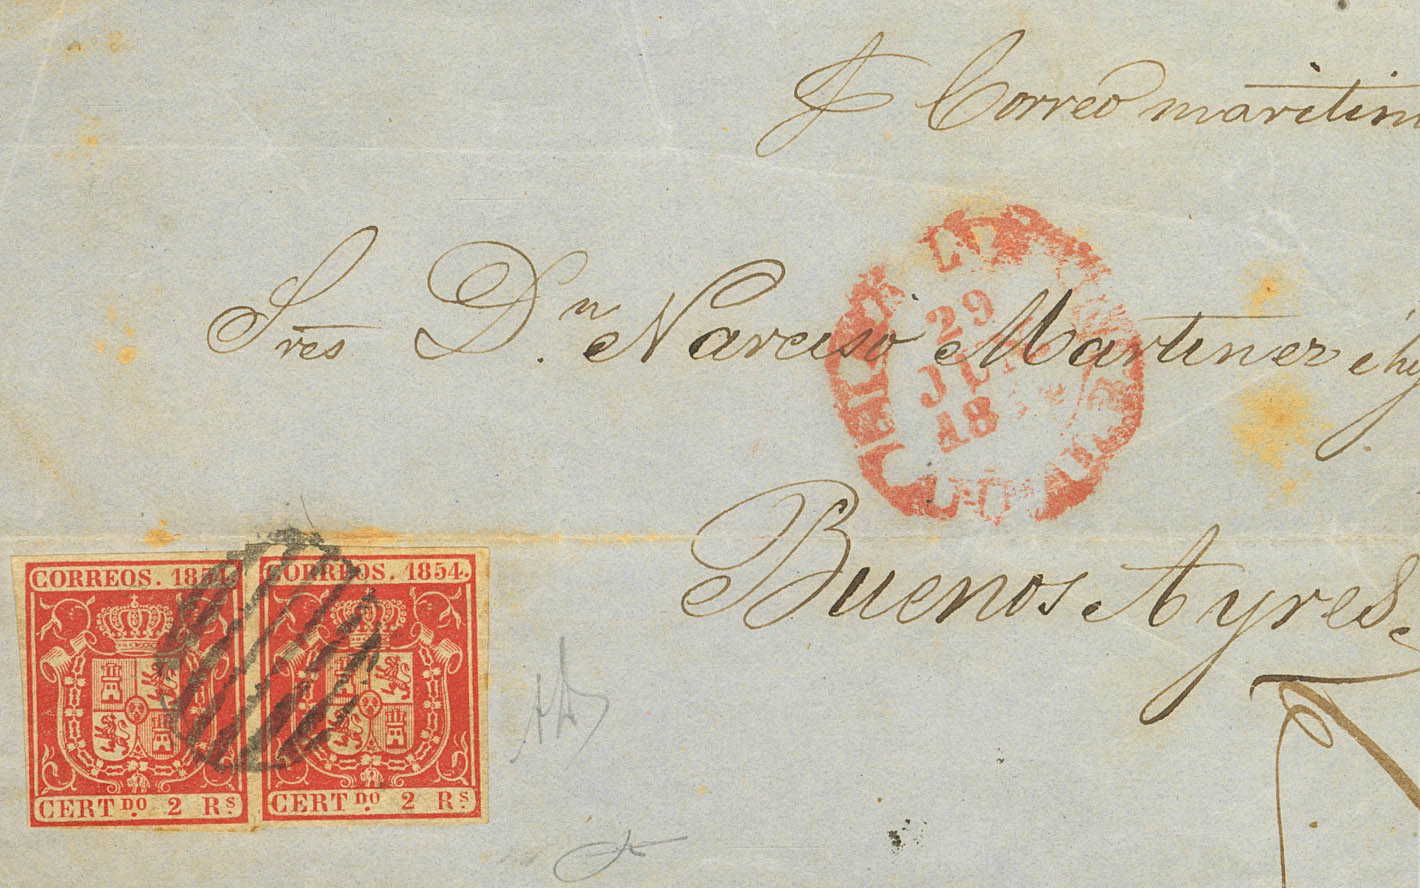 Correo maritim
Sres Dn. Narciso Martinez é hij
Buenos Ayres
29
JL
18
CORREOS. 1854.
CERTDO. 2 RS.
CORREOS. 1854.
CERTDO. 2 RS.